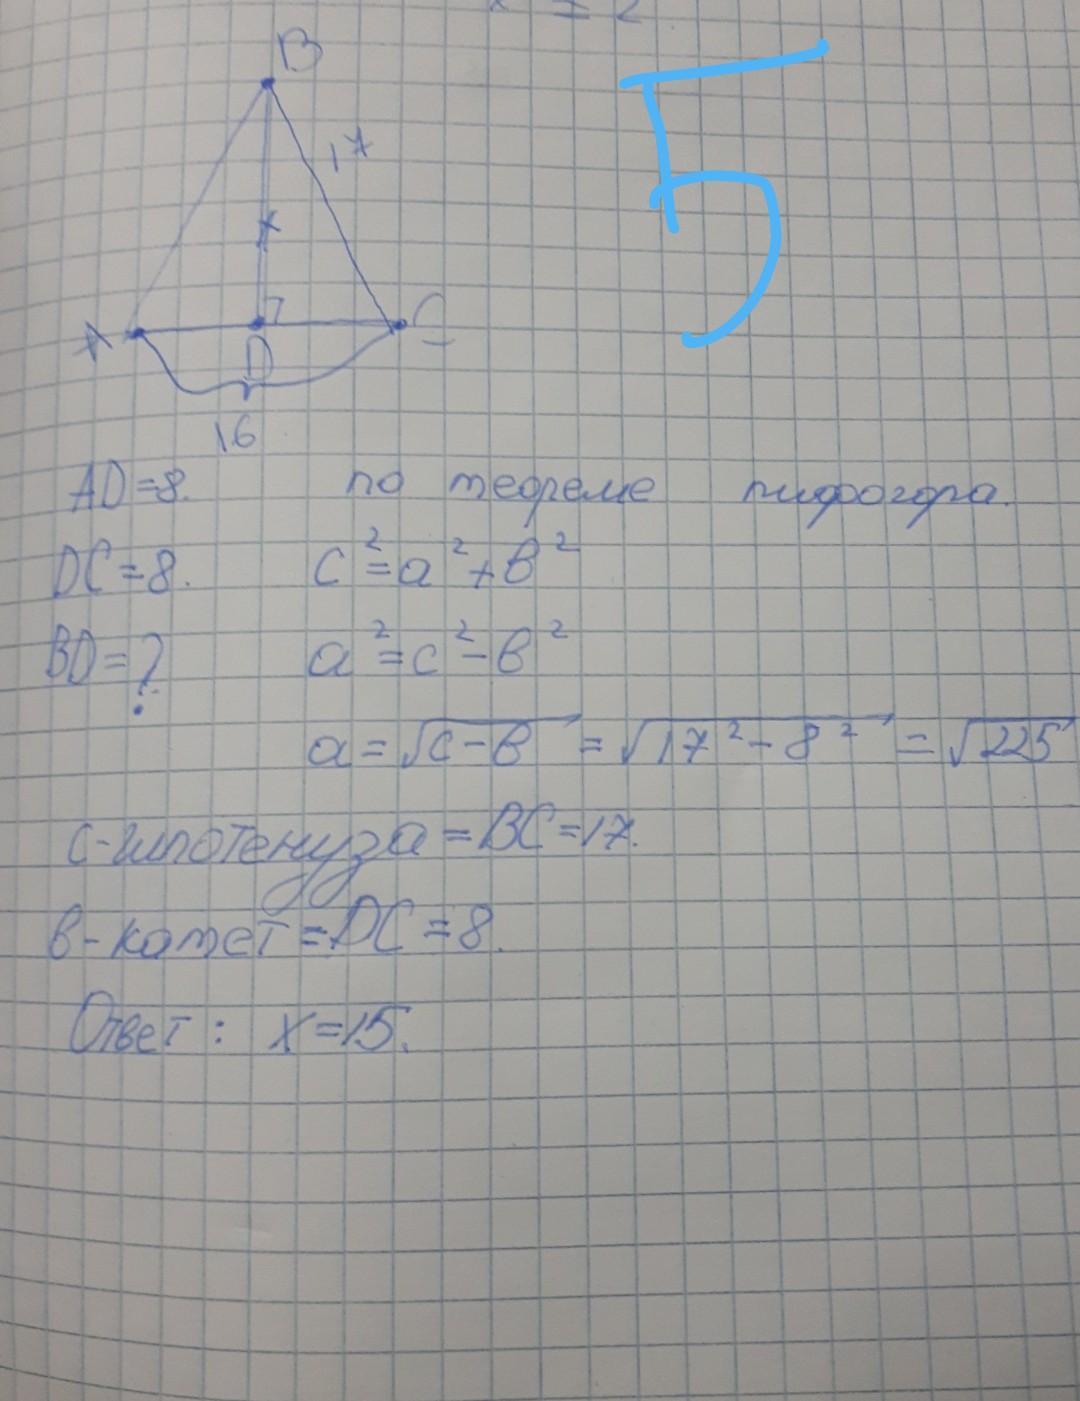 B
5
17
x
A
D
C
16
AD=8. по теореме пифогора.
DC=8. c²=a²+b²
BD=? a²=c²-b²
a=√c-b=√17²-8²=√225
c-гипотенуза=BC=17.
b-катет=DC=8.
Ответ: x=15.